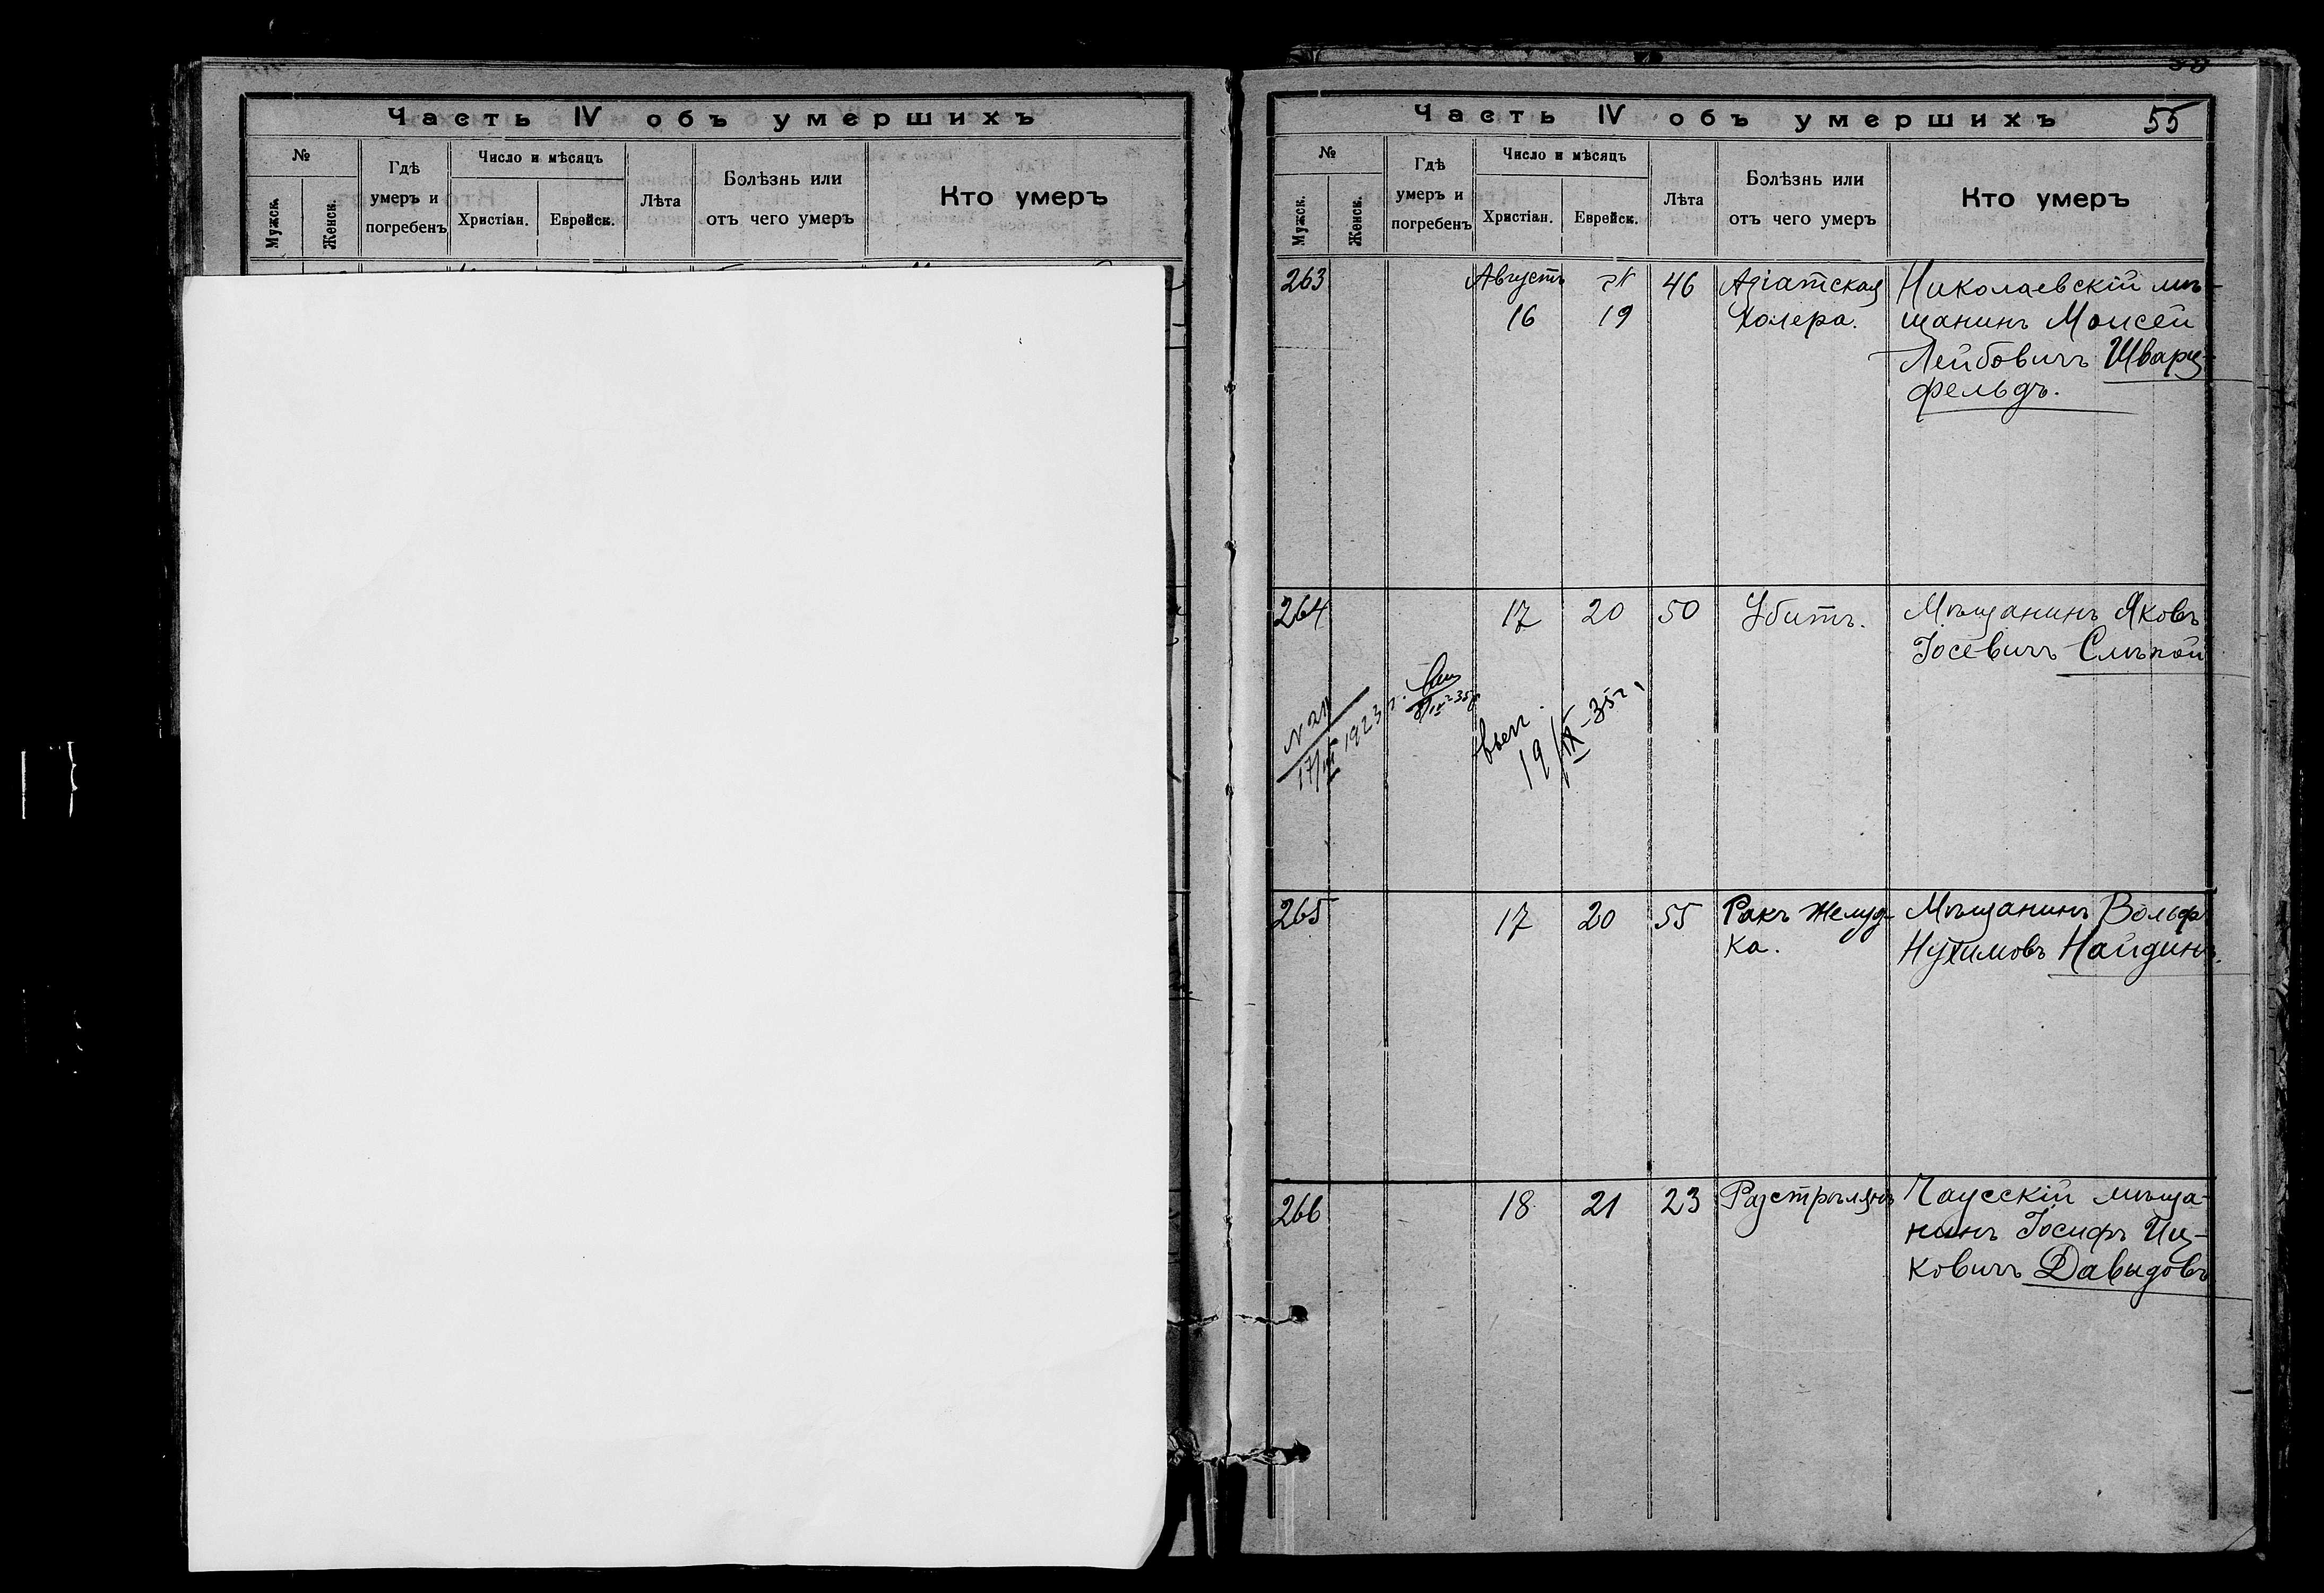 Часть IV объ умершихъ
№
Мужск.
Женск.
Гдѣ
умеръ и
погребенъ
Число и мѣсяцъ
Христіан.
Еврейск.
Лѣта
Болѣзнь или
отъ чего умеръ
Кто умеръ
Часть IV объ умершихъ
55
№
Мужск.
Женск.
Гдѣ
умеръ и
погребенъ
Число и мѣсяцъ
Христіан.
Еврейск.
Лѣта
Болѣзнь или
отъ чего умеръ
Кто умеръ
263
Августъ
16
19
46
Азіатская
Холера.
Николаевскій мѣ-
щанинъ Моисей
Лейбовичъ Шварц-
фельдъ.
264
17
20
50
Убитъ.
Мѣщанинъ Яковъ
Іосевичъ Слѣпой
1923 г.
19/IX-35 г.
265
17
20
55
Ракъ желуд-
ка.
Мѣщанинъ Вольф
Нухимовъ Найдинъ.
266
18
21
23
Разстрѣлянъ
Чаусскій мѣща-
нинъ Іосифъ Иц-
ковичъ Давыдовъ